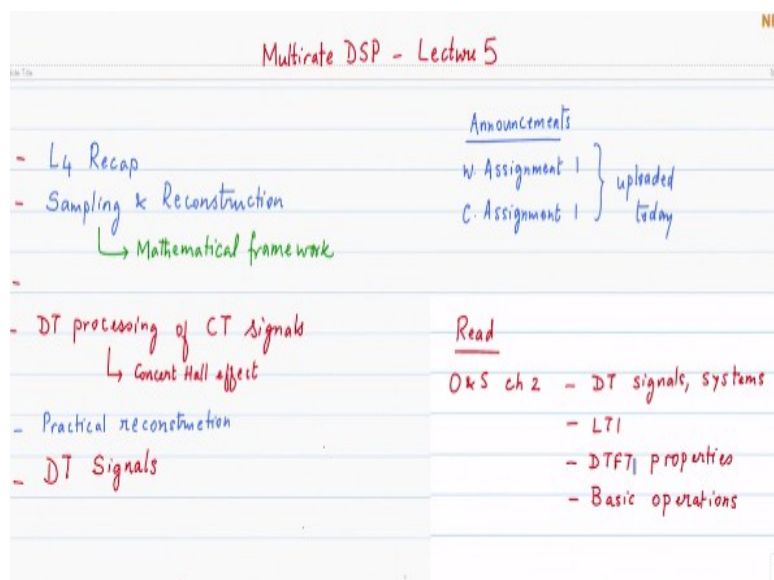 Multirate DSP - Lecture 5
- L4 Recap
- Sampling & Reconstruction
↳ Mathematical framework
-
- DT processing of CT signals
↳ Concert Hall effect
- Practical reconstruction
- DT Signals
Announcements
W. Assignment 1
C. Assignment 1
uploaded
today
Read
O&S ch 2 - DT signals, systems
- LTI
- DTFT properties
- Basic operations